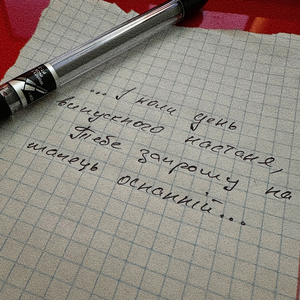 ... І коли день
випускного настане,
Тебе запрошу на
танець останній...